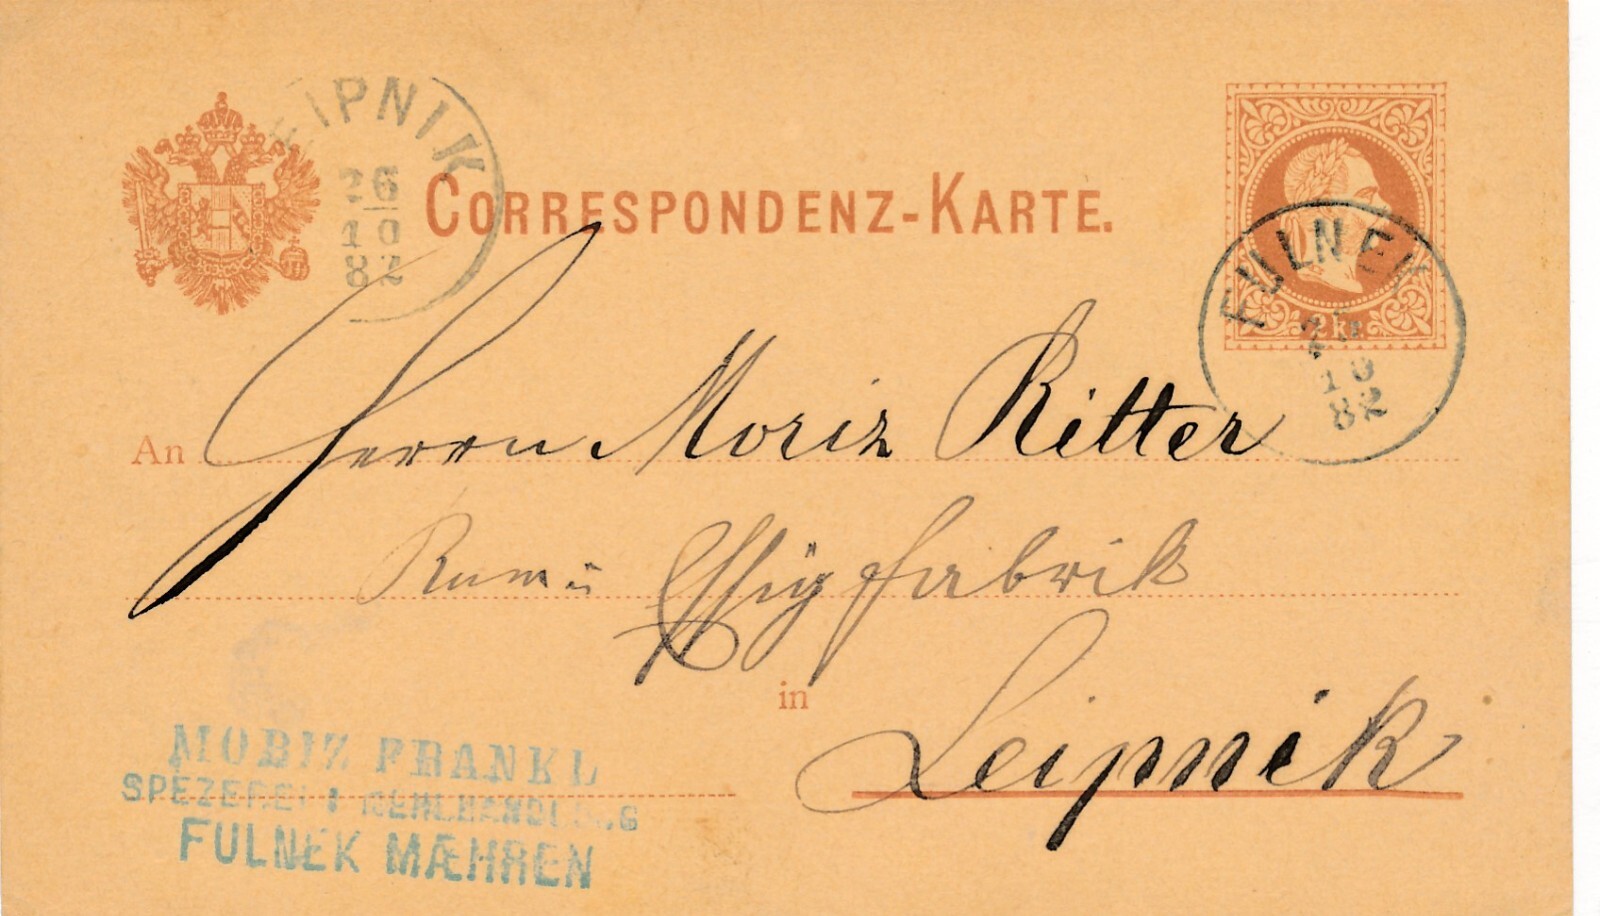 LEIPNIK
26
10
82
CORRESPONDENZ-KARTE.
2 kr.
FULNEK
10
82
An Herrn Moriz Ritter
Rum u Essigfabrik
in Leipnik
MORIZ FRANKL
SPEZEREI & MEHLHANDLUNG
FULNEK MÆHREN